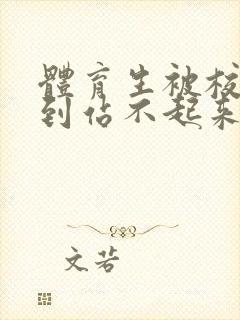 體育生被校
到佔不起來
文若